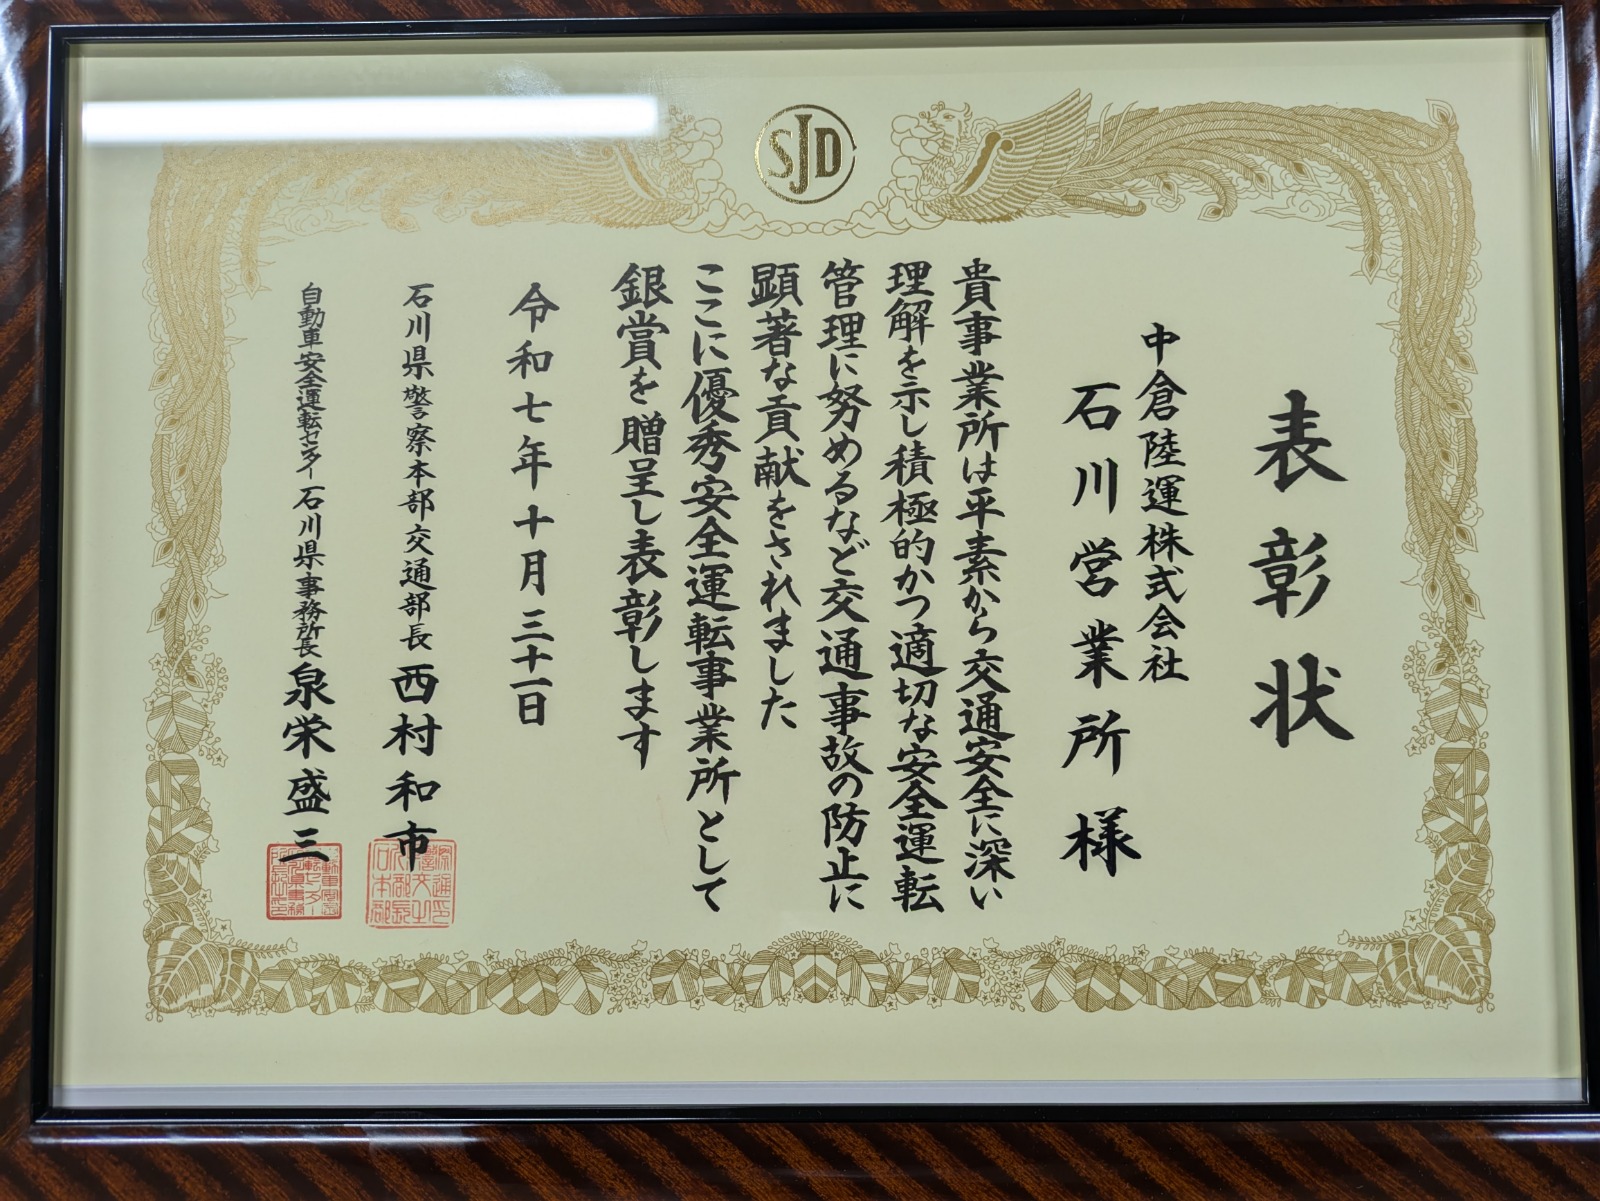 SJD
表彰状
中倉陸運株式会社
石川営業所 様
貴事業所は平素から交通安全に深い
理解を示し積極的かつ適切な安全運転
管理に努めるなど交通事故の防止に
顕著な貢献をされました
ここに優秀安全運転事業所として
銀賞を贈呈し表彰します
令和七年十月三十一日
石川県警察本部交通部長 西村和市
自動車安全運転センター石川県事務所長 泉栄盛三